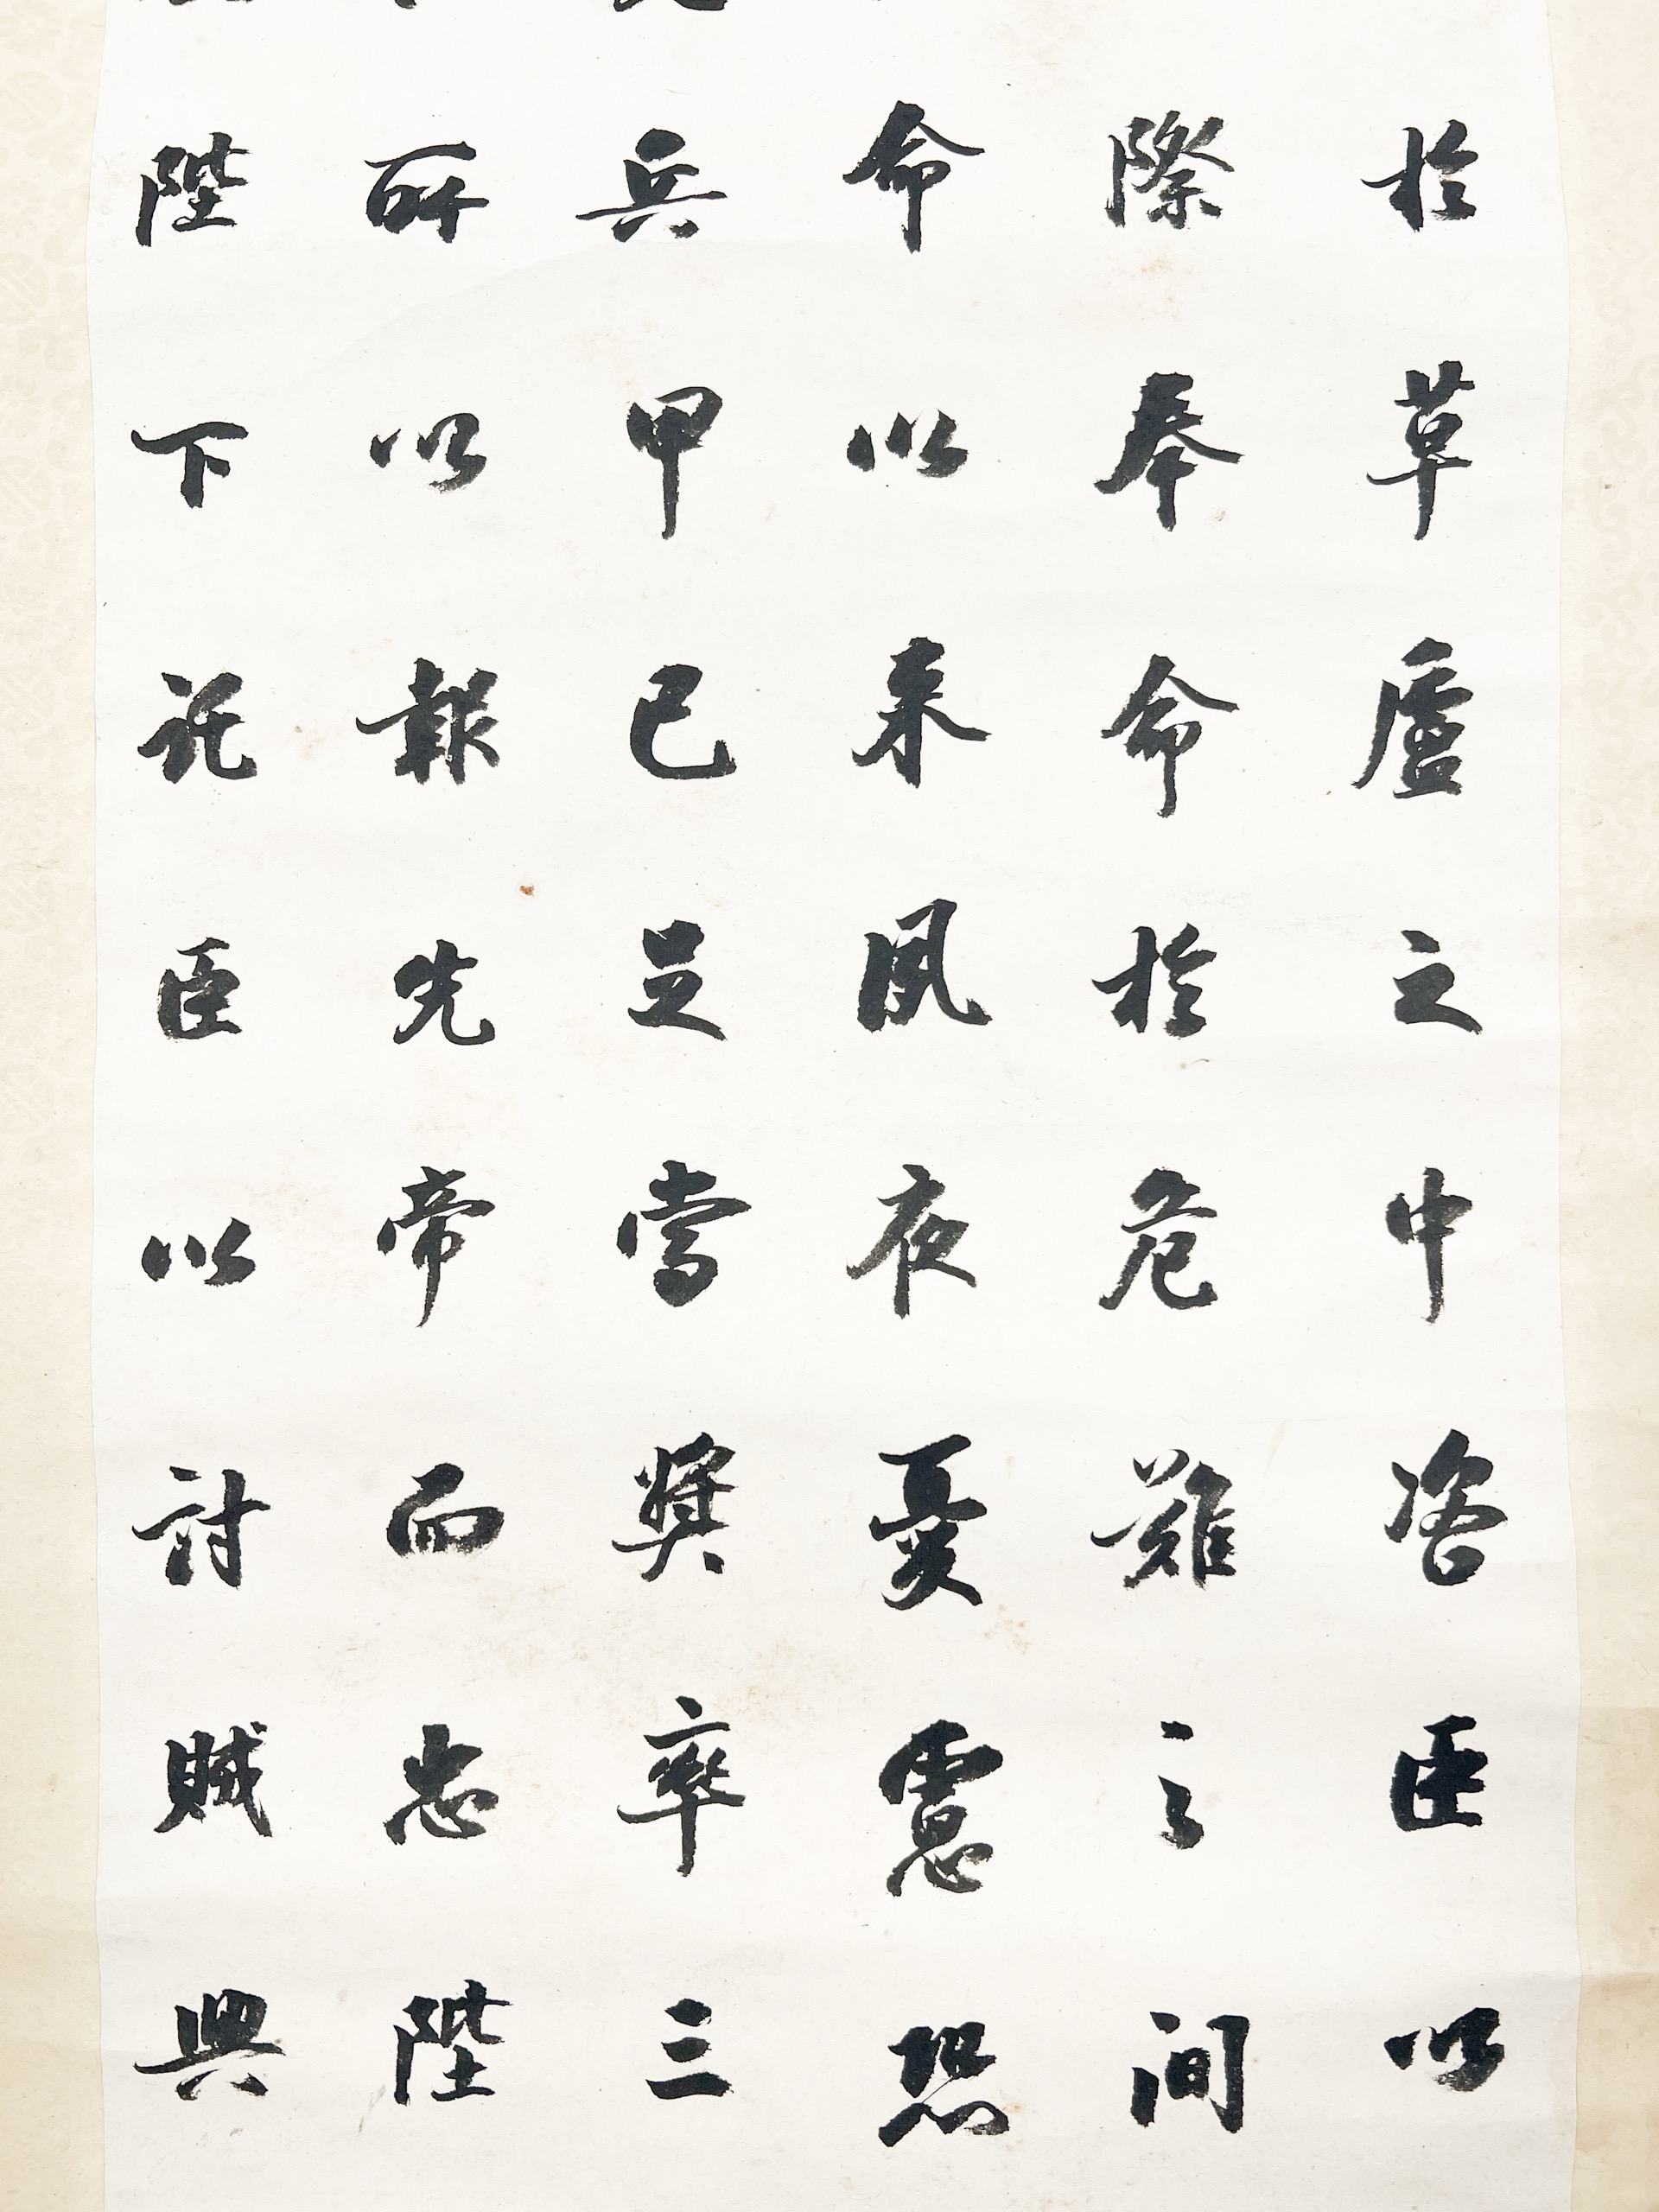 於草廬之中咨臣以
際奉命於危難之間
命以來夙夜憂慮恐
兵甲已足當奬率三
所以報先帝而忠陛
陛下託臣以討賊興